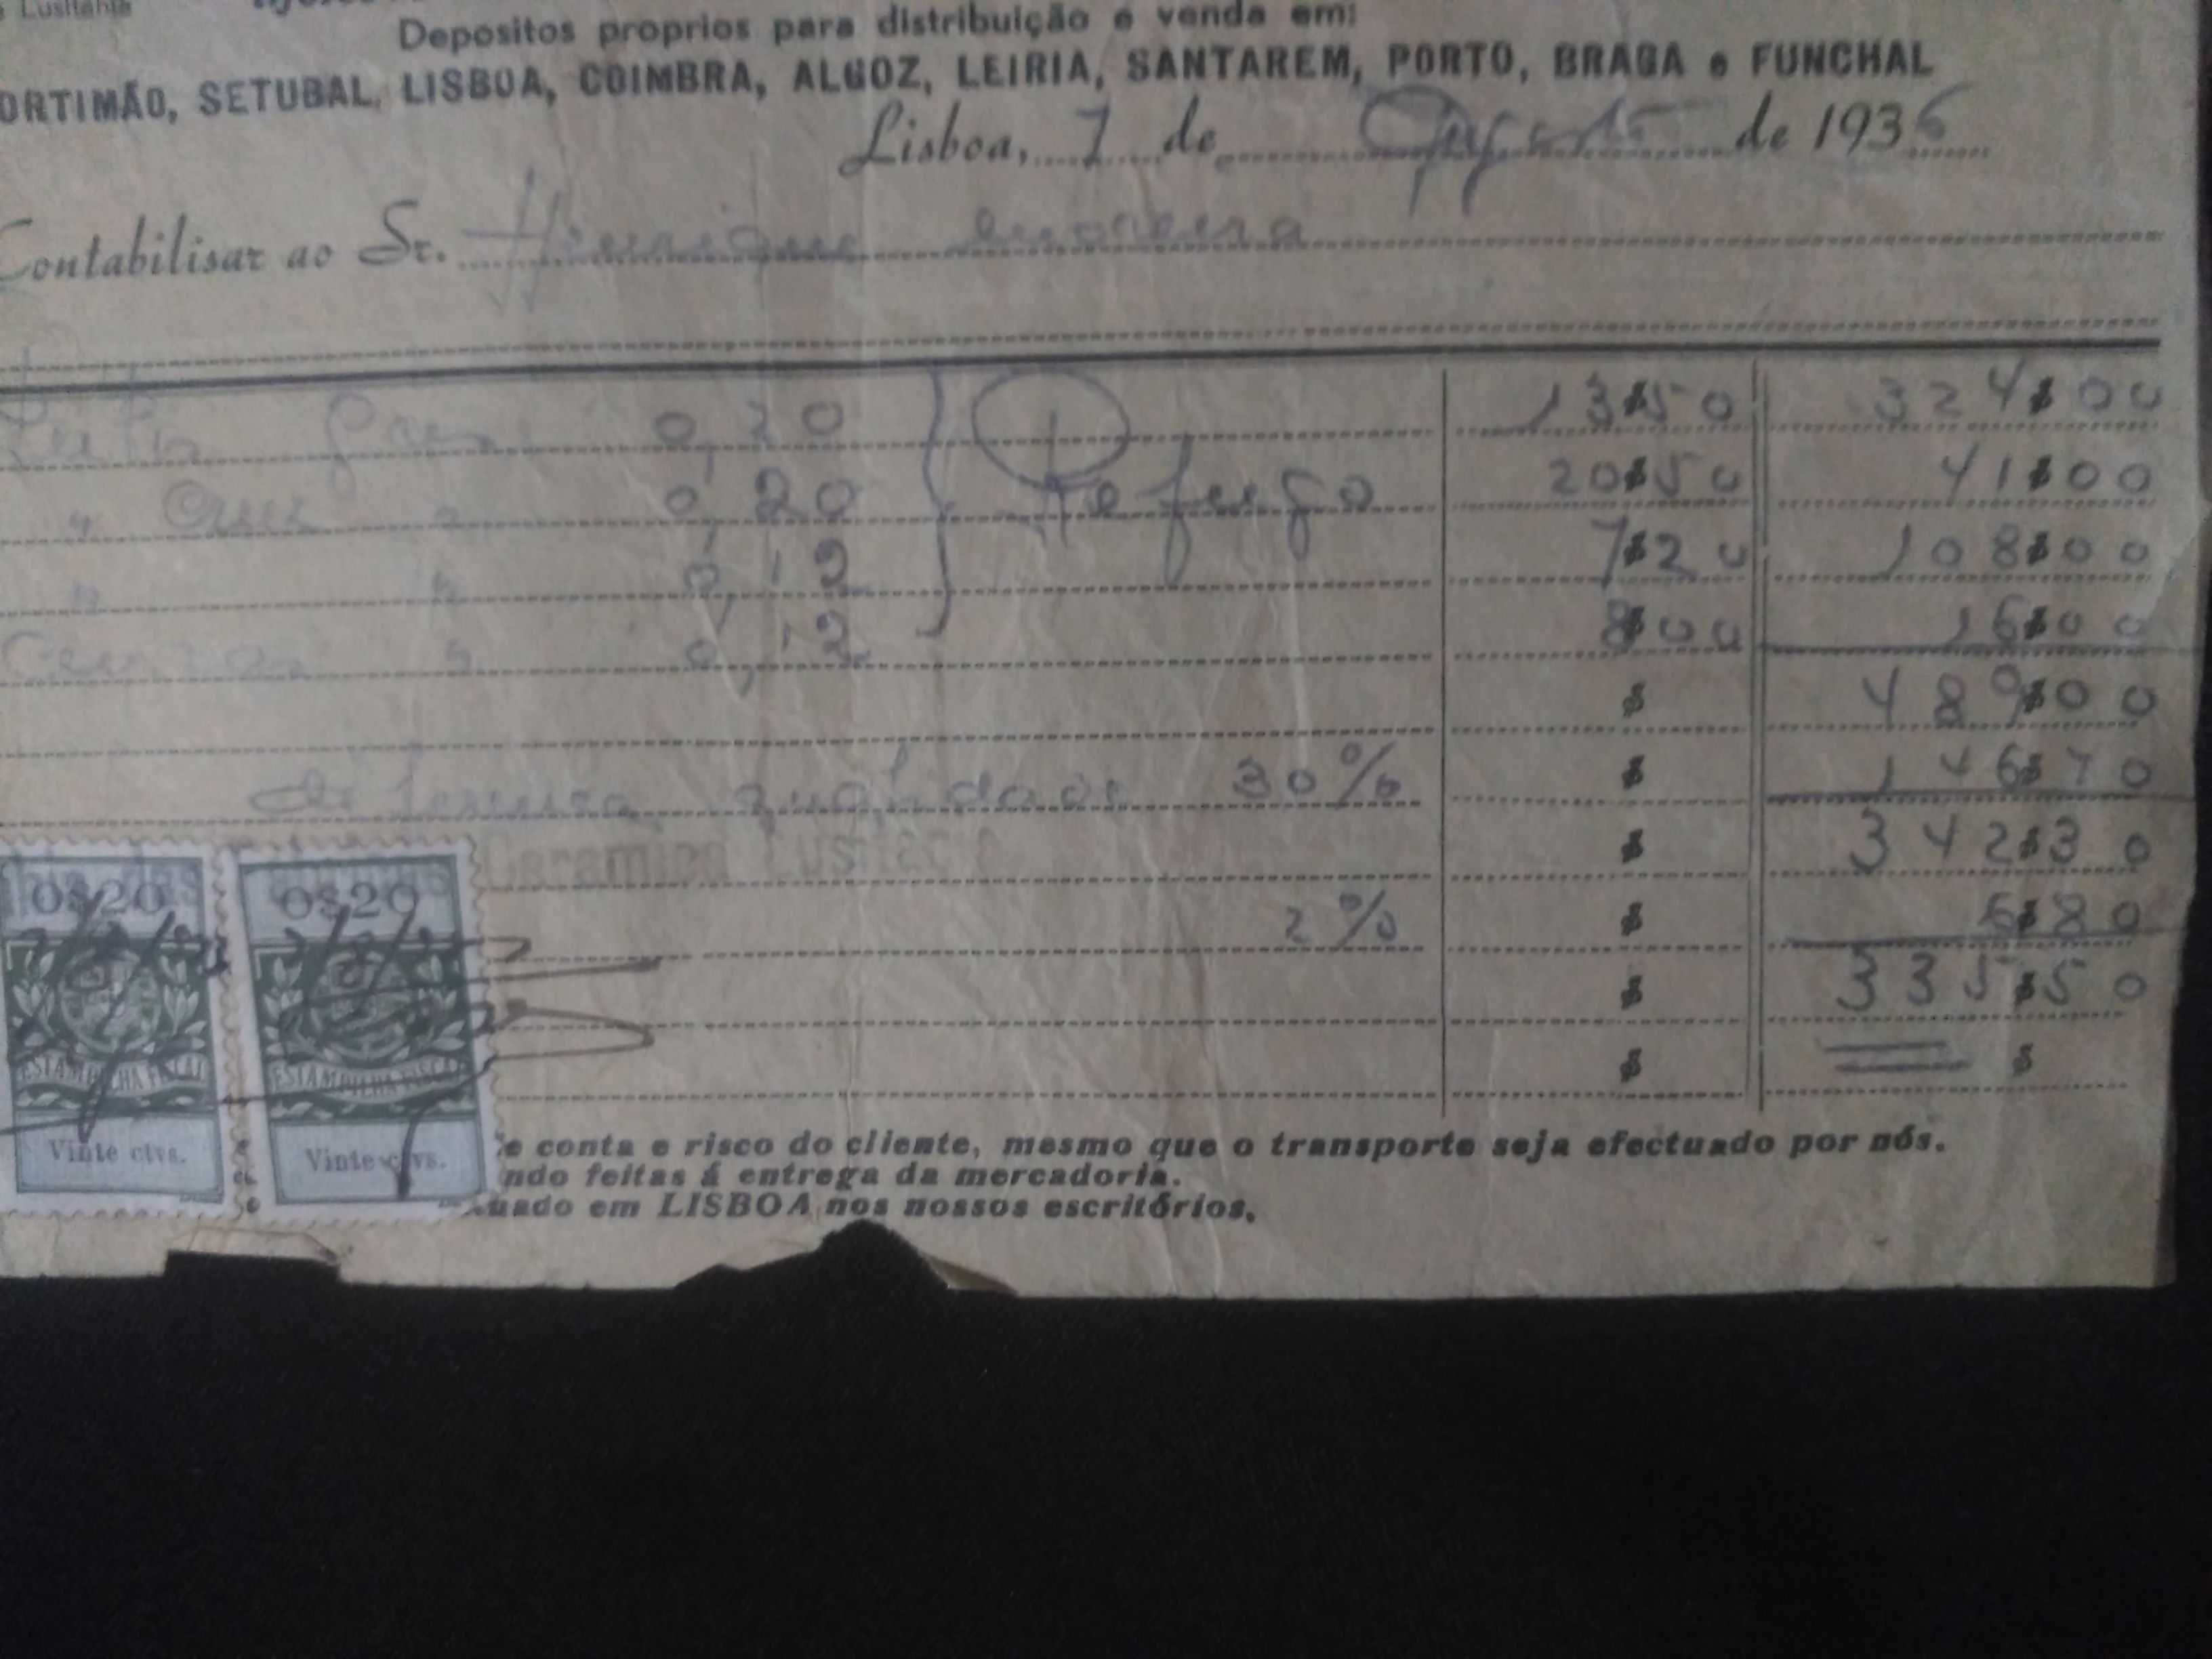 Lusitania
Depositos proprios para distribuição e venda em:
ORTIMÃO, SETUBAL, LISBOA, COIMBRA, ALGOZ, LEIRIA, SANTAREM, PORTO, BRAGA e FUNCHAL
Lisboa, 7 de Agosto de 1936
Contabilisar ao Sr. Henrique
0,20 13$50 324$00
" " 0,20 Refugo 20$50 41$00
" " 0,12 7$20 108$00
" 0,12 8$00 16$00
$ 489$00
30% $ 146$70
Ceramica Lusitania $ 342$30
2% $ 6$80
$ 335$50
$ $
0$20 0$20
ESTAMPILHA FISCAL ESTAMPILHA FISCAL
Vinte ctvs. Vinte ctvs.
e conta e risco do cliente, mesmo que o transporte seja efectuado por nós.
ndo feitas á entrega da mercadoria.
uado em LISBOA nos nossos escritórios.